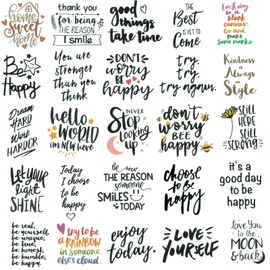 Home
Sweet
home
thank you
for being
THE REASON
I smile
good
things
take time
THE
Best
IS YET TO
COME
Each day
is a
blank
canvas
Go and
make
some marks
Be
Happy
You are
Stronger
Than you
Think
DON'T
worry
be
happy
try.
try.
try again.
Kindness
is
Always
in
Style
Dream
BIG
Work
HARDER
hello
WORLD
I'm NEW here
NEVER
STOP
Looking
up
don't
worry
BEE
happy
STILL
HERE
STILL
STRONG
Let Your
Light
SHINE
Today
I choose
to be
happy
Be THE
REASON
someone
SMILES
TODAY
choose
to be
happy
it's a
good day
to be
happy
be real,
be yourself,
be unique,
be true,
be honest,
be humble,
be happy.
try to be
a RAINBOW
in someone
else's cloud.
enjoy
today.
LOVE
YOURSELF
Love You
to the
MOON
& back